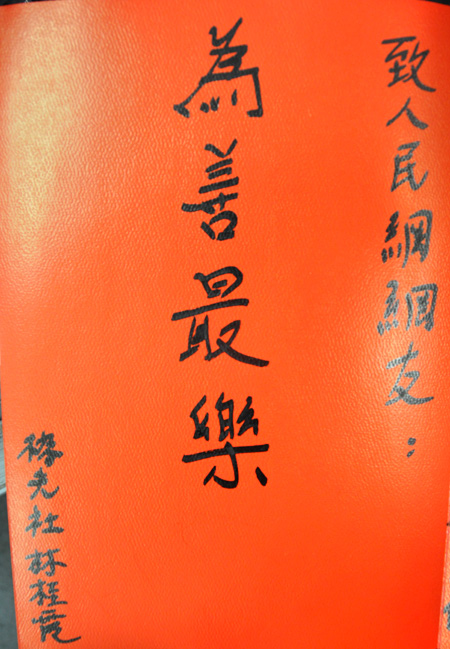 致人民網網友：
為善最樂
徐光杜 林桂霞